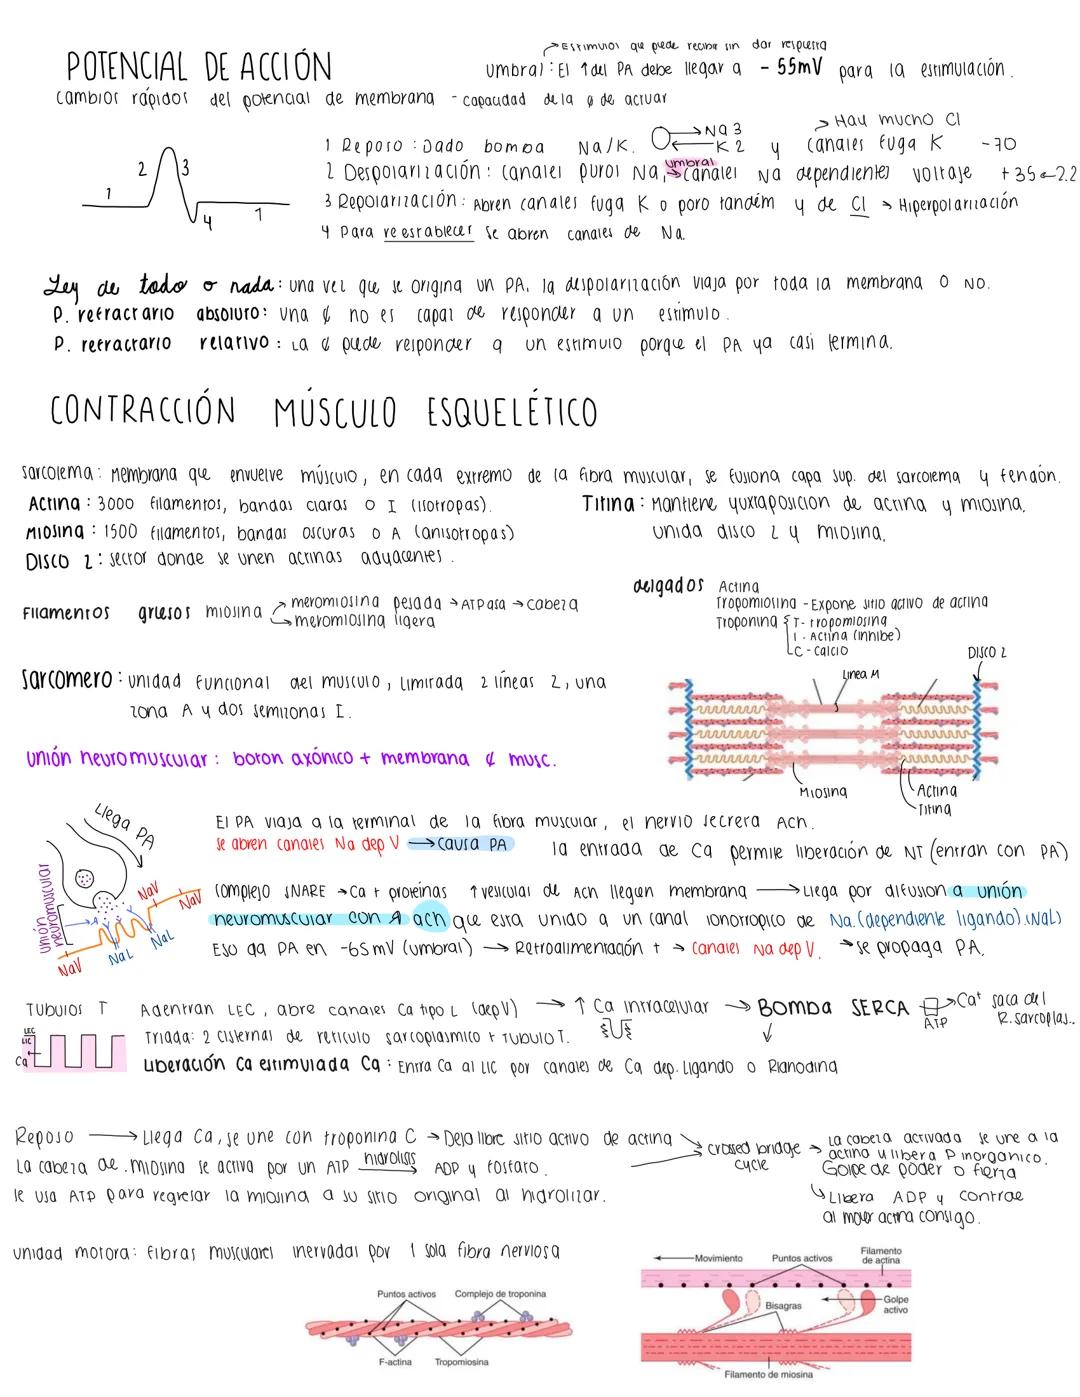 POTENCIAL DE ACCIÓN
→ Estimulos que puede recibir sin dar respuesta
Umbral: El ↑ del PA debe llegar a - 55mV para la estimulación.
Cambios rápidos del potencial de membrana - capacidad de la ¢ de actuar
1 2 3 4 1
1 Reposo: Dado bomba Na/K. → Na 3 ← K 2 y canales fuga K -70
> Hay mucho Cl
2 Despolarización: canales puros Na, → canales Na dependientes voltaje +35 ← 22
umbral
3 Repolarización: Abren canales fuga K o poro tandem y de Cl → Hiperpolarización
4 Para reestablecer se abren canales de Na.
Ley de todo o nada: una vez que se origina un PA, la despolarización viaja por toda la membrana o NO.
P. refractario absoluto: una ¢ no es capaz de responder a un estimulo.
P. refractario relativo: La ¢ puede responder a un estimulo porque el PA ya casi termina.
CONTRACCIÓN MÚSCULO ESQUELÉTICO
Sarcolema: Membrana que envuelve músculo, en cada extremo de la fibra muscular, se fusiona capa sup. del sarcolema y tendón.
Actina: 3000 filamentos, bandas claras o I (isotropas).
Miosina: 1500 filamentos, bandas oscuras o A (anisotropas)
Disco Z: sector donde se unen actinas adyacentes.
Titina: Mantiene yuxtaposicion de actina y miosina, unida disco Z y miosina.
Filamentos gruesos miosina → meromiosina pesada → ATPasa → cabeza
→ meromiosina ligera
delgados Actina
Tropomiosina - Expone sitio activo de actina
Troponina { T - tropomiosina
I - Actina (inhibe)
C - calcio
Sarcomero: unidad funcional del musculo, limitada 2 líneas Z, una
zona A y dos semizonas I.
Linea M
DISCO Z
Miosina
Actina
Titina
Unión neuromuscular: boton axónico + membrana ¢ musc.
Llega PA
unión neuromuscular
NaV
NaV
A
NaL
NaL
NaV
El PA viaja a la terminal de la fibra muscular, el nervio secreta Ach.
se abren canales Na dep V → causa PA la entrada de Ca permite liberación de NT (entran con PA)
Complejo SNARE → Ca + proteinas ↑ vesiculas de Ach lleguen membrana → Llega por difusion a unión
neuromuscular con A ach que esta unido a un canal ionotropico de Na.(dependiente ligando).(NaL)
Eso da PA en -65mV (umbral) → Retroalimentación + → canales Na dep V. → se propaga PA.
Tubulos T Adentran LEC, abre canales Ca tipo L (depV) → ↑ Ca intracelular → Bomba SERCA → Ca+ saca del
R. sarcoplas..
ATP
LEC
LIC
Ca
Triada: 2 cisternas de reticulo sarcoplasmico + tubulo T.
Liberación Ca estimulada Ca: Entra Ca al LIC por canales de Ca dep. Ligando o Rianodina
Reposo → Llega Ca, se une con troponina C → Deja libre sitio activo de actina
La cabeza de miosina se activa por un ATP hidrolisis → ADP y fosfato.
se usa ATP para regresar la miosina a su sitio original al hidrolizar.
crossed bridge cycle
→ La cabeza activada se une a la
actina y libera P inorganico.
Golpe de poder o fuerza
↳ Libera ADP y contrae
al mover actina consigo.
unidad motora: fibras musculares inervadas por 1 sola fibra nerviosa
Puntos activos
Complejo de troponina
F-actina
Tropomiosina
Movimiento
Puntos activos
Filamento
de actina
Bisagras
Golpe
activo
Filamento de miosina